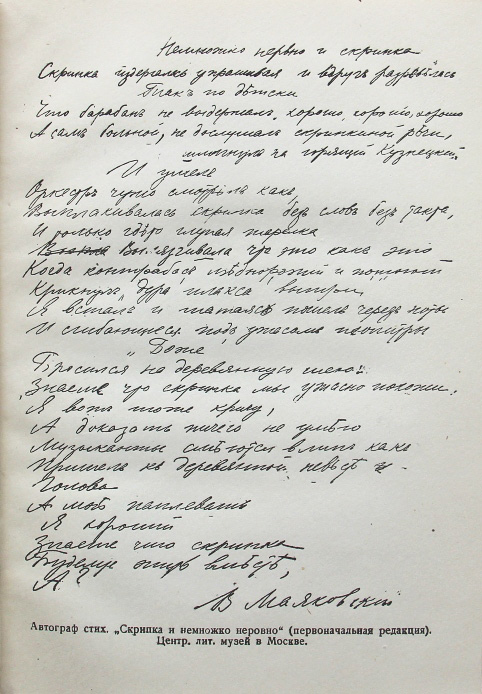 Немножко нервно и скрипка
Скрипка издергалась упрашивая и вдругъ разревѣлась
Такъ по дѣтски
Что барабан не выдержал, хорошо, хорошо, хорошо
А самъ больной, не дослушалъ скрипкиной рѣчи,
шмыгнулъ на горящий Кузнецкий
И ушелъ
Оркестръ чужо смотрѣлъ какъ
Выплакивалась скрипка безъ словъ безъ такта,
И только гдѣто глупая тарелка
Вылязгивала что это какъ это
Когда контрабасъ мѣднорожий и потный
Крикнулъ „дура плакса вытри„
Я всталъ и шатаясь полѣзъ черезъ ноты
И сгибающиеся подъ ужасомъ пюпитры
„Боже„
Бросился на деревянную шею:
„Знаете что скрипка мы ужасно похожи:
Я вотъ тоже кричу,
А доказать ничего не умѣю
Музыканты смѣются влипъ какъ
Пришелъ къ деревянной невѣстѣ
Голова
А мнѣ наплевать
Я хороший
Знаете что скрипка
Будемте жить вмѣстѣ,
А?
В Маяковский
Автограф стих. „Скрипка и немножко неровно“ (первоначальная редакция).
Центр. лит. музей в Москве.